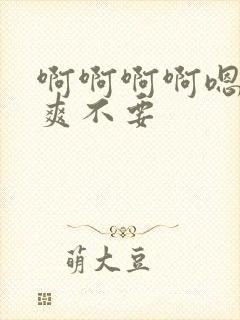 啊啊啊啊嗯
爽不要
萌大豆